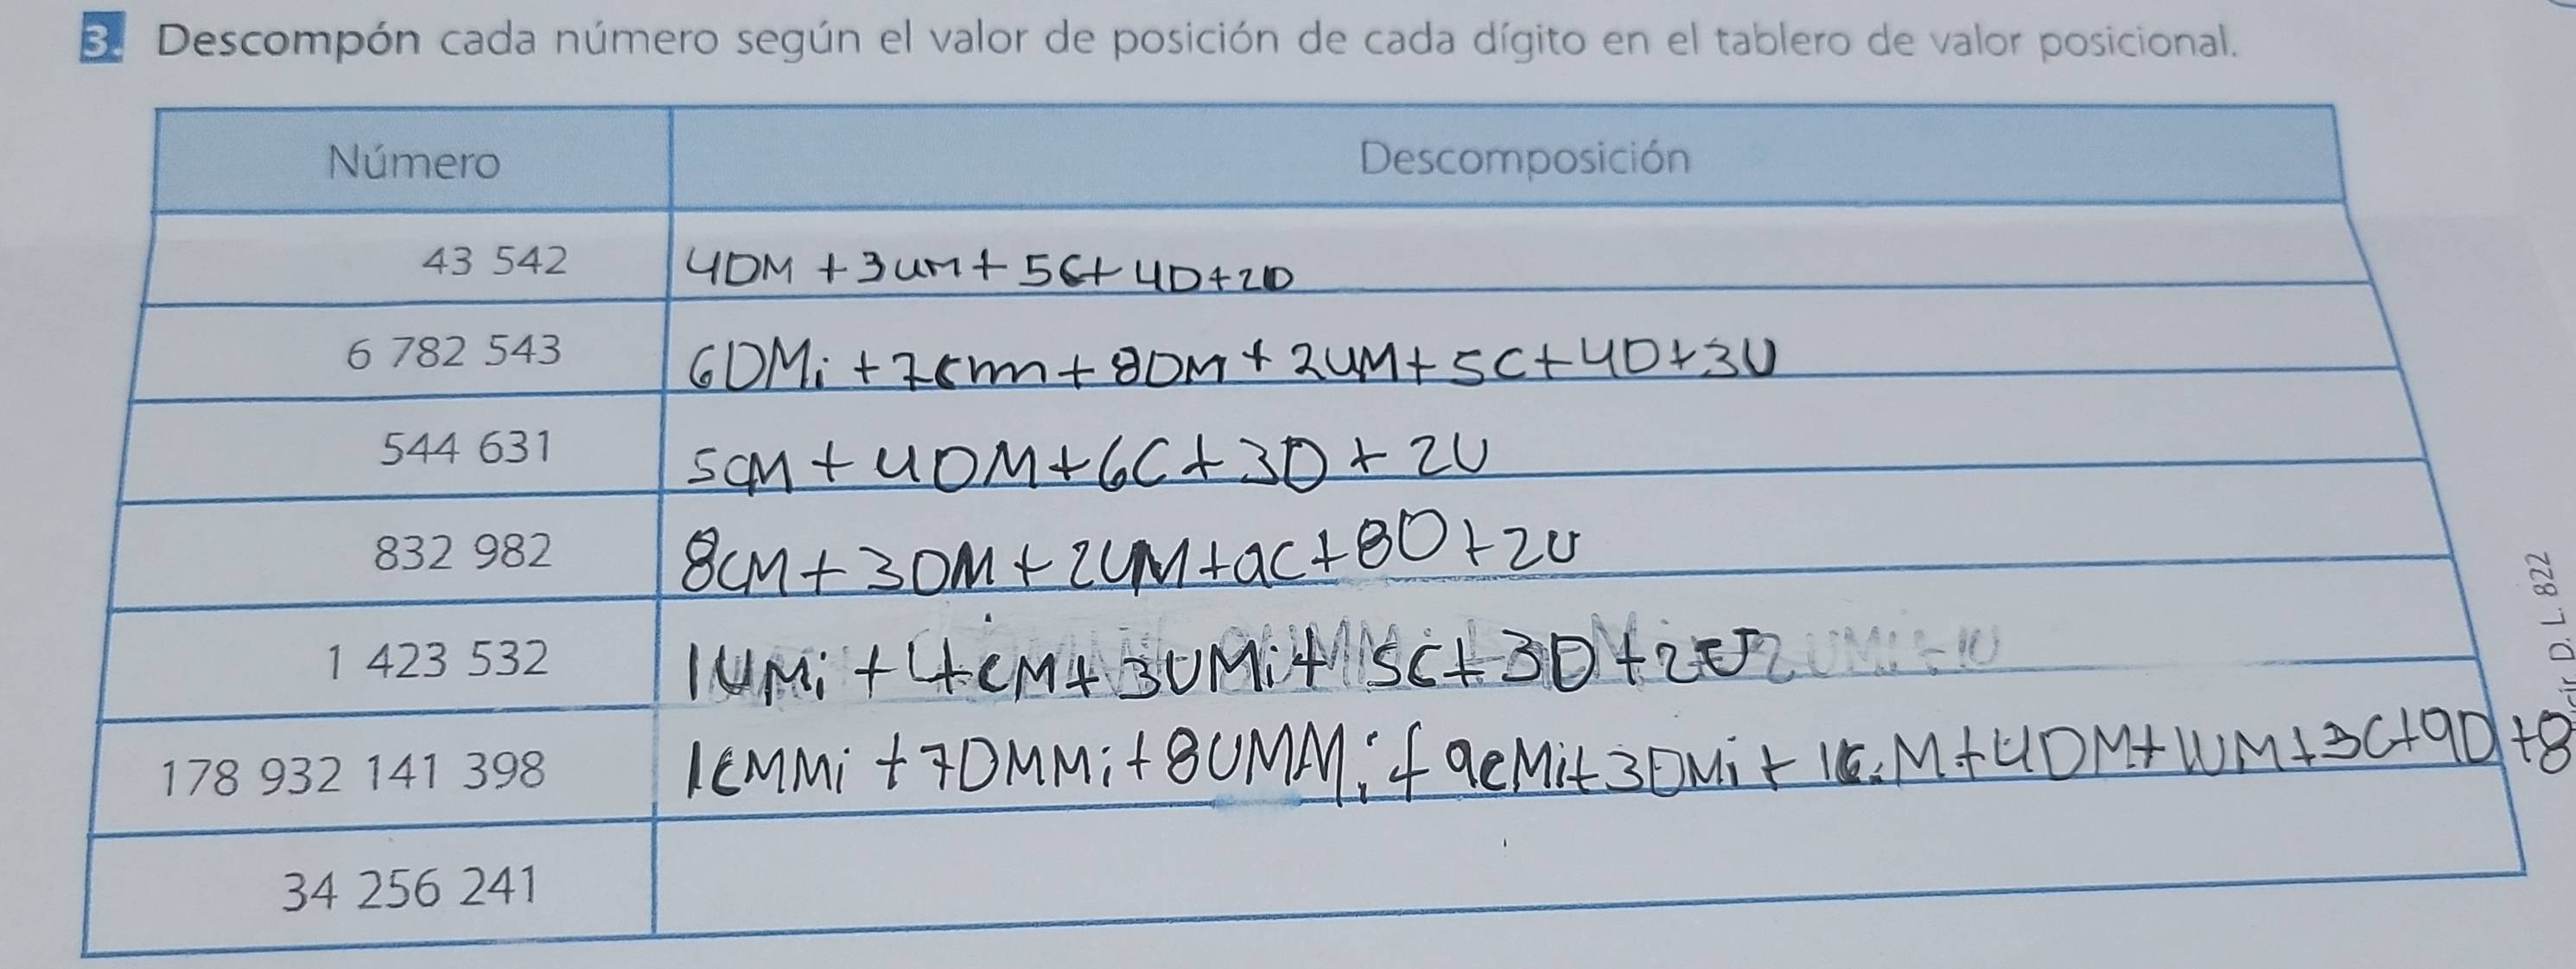 3. Descompón cada número según el valor de posición de cada dígito en el tablero de valor posicional.
Número Descomposición
43 542 4DM + 3UM + 5C + 4D + 2D
6 782 543 6DMi + 7cm + 8DM + 2UM + 5C + 4D + 3U
544 631 5CM + 4DM + 6C + 3D + 2U
832 982 8CM + 3DM + 2UM + 9C + 8D + 2U
1 423 532 1UMi + 4CM + 3UMi + 5C + 3D + 2U
178 932 141 398 1CMMi + 7DMMi + 8UMMi + 9CMi + 3DMi + 1C.M + 4DM + 1UM + 3C + 9D + 8
34 256 241
D. L. 822